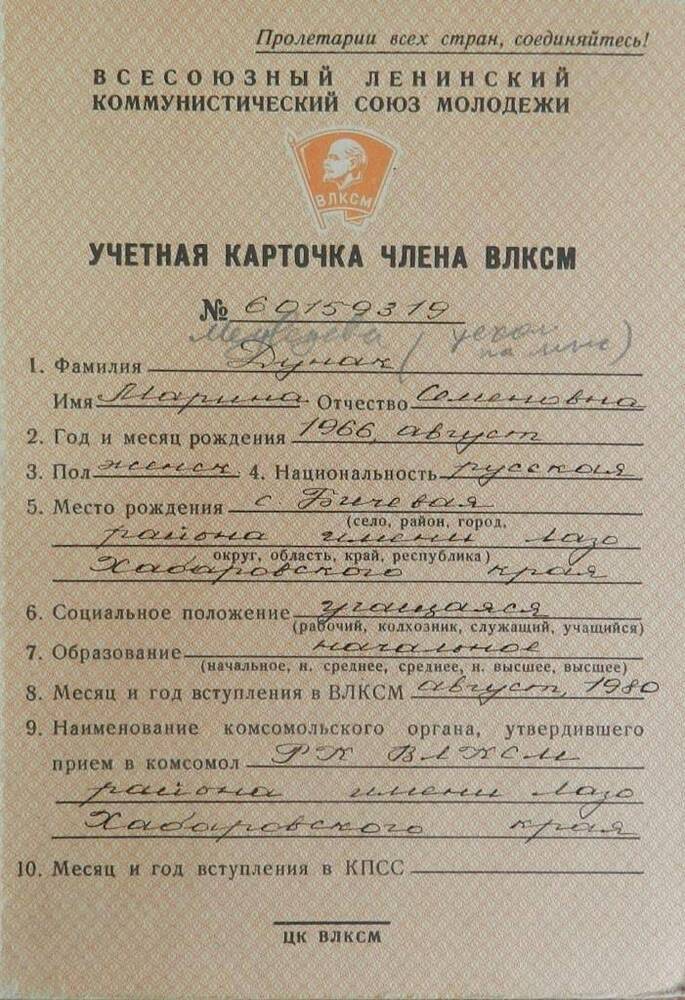 Пролетарии всех стран, соединяйтесь!
ВСЕСОЮЗНЫЙ ЛЕНИНСКИЙ
КОММУНИСТИЧЕСКИЙ СОЮЗ МОЛОДЕЖИ
ВЛКСМ
УЧЕТНАЯ КАРТОЧКА ЧЛЕНА ВЛКСМ
№ 60159319
1. Фамилия Дунак (
Имя Марина Отчество Семеновна
2. Год и месяц рождения 1966, август
3. Пол женск. 4. Национальность русская
5. Место рождения с. Бичевая
(село, район, город,
района имени Лазо
округ, область, край, республика)
Хабаровского края
6. Социальное положение учащаяся
(рабочий, колхозник, служащий, учащийся)
7. Образование начальное
(начальное, н. среднее, среднее, н. высшее, высшее)
8. Месяц и год вступления в ВЛКСМ август, 1980
9. Наименование комсомольского органа, утвердившего
прием в комсомол РК ВЛКСМ
района имени Лазо
Хабаровского края
10. Месяц и год вступления в КПСС
ЦК ВЛКСМ